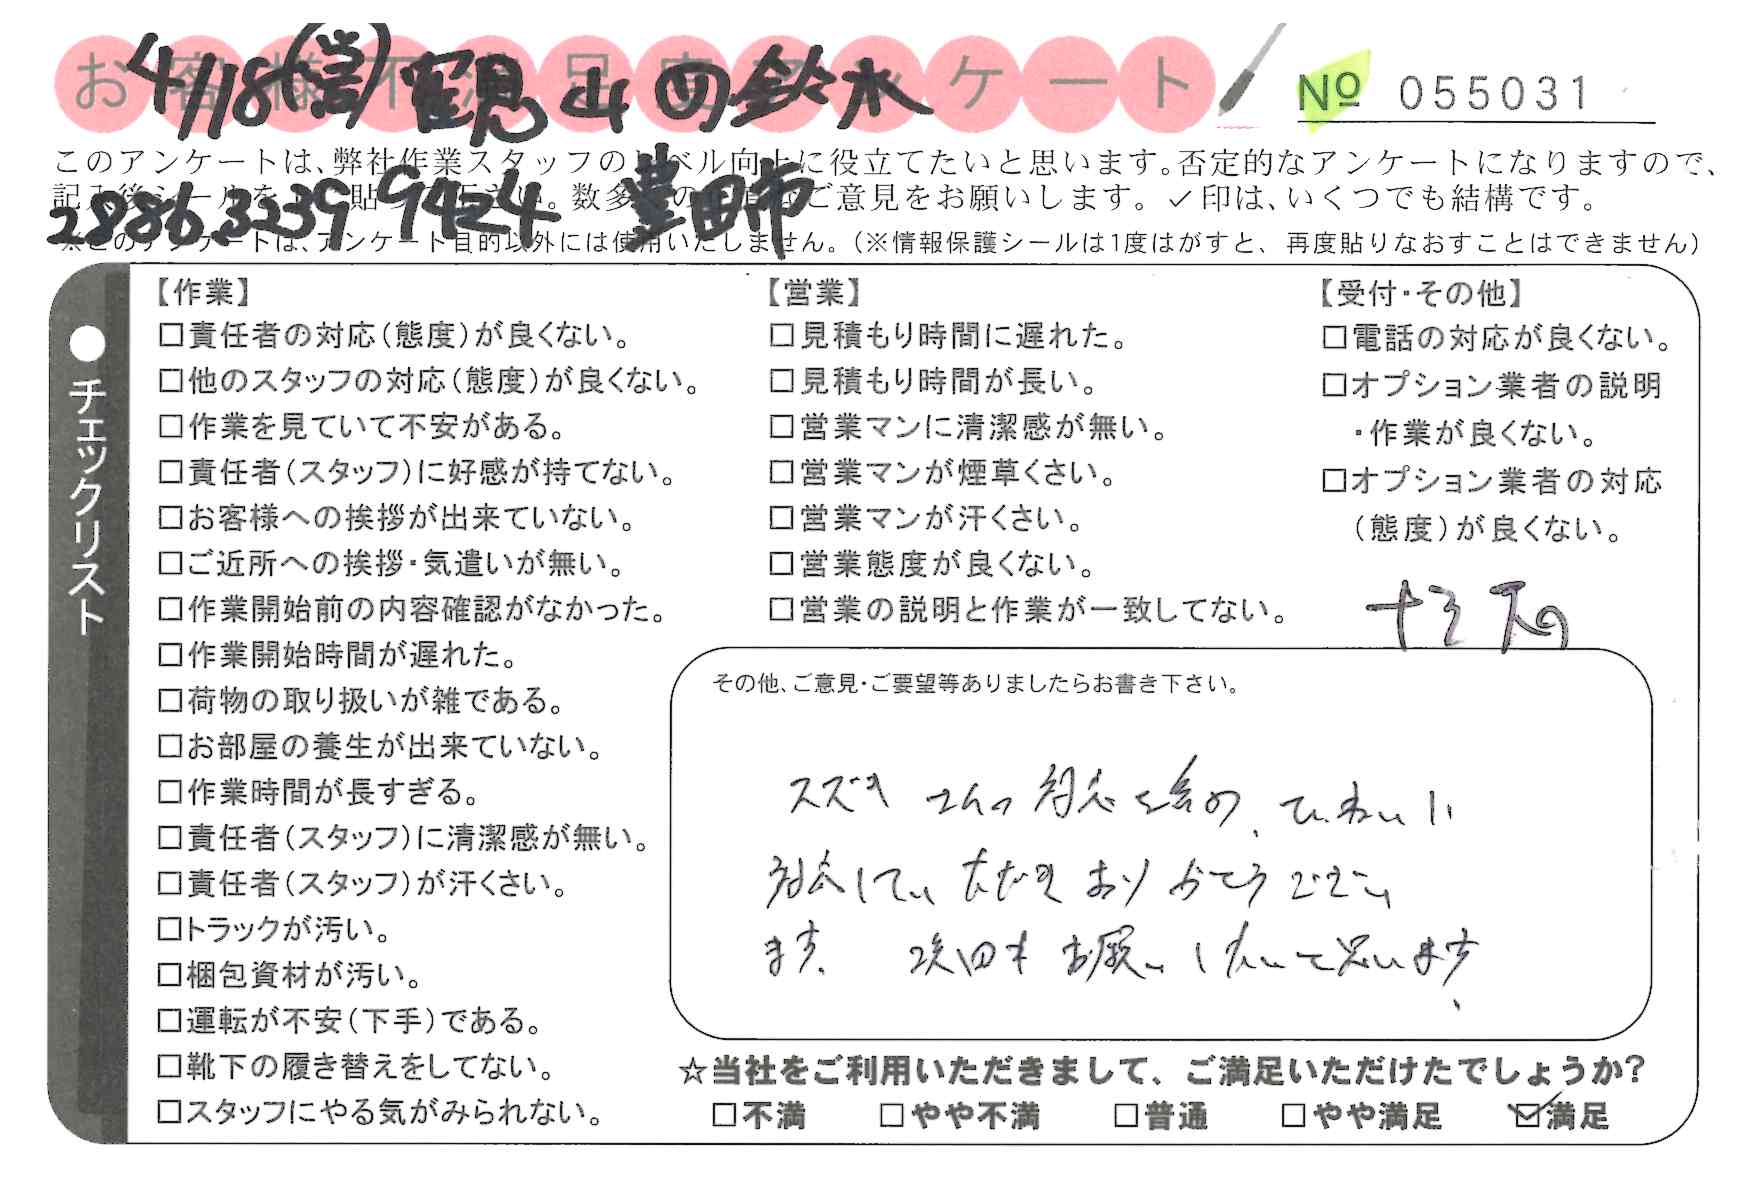 お客様不満足度アンケート
4/18 山 の鈴木
№ 055031
このアンケートは、弊社作業スタッフのレベル向上に役立てたいと思います。否定的なアンケートになりますので、
記み後シールを 貼 。数多 の ご意見をお願いします。✓印は、いくつでも結構です。
28863239 9424 豊田市
※このアンケートは、アンケート目的以外には使用いたしません。(※情報保護シールは1度はがすと、再度貼りなおすことはできません)
●チェックリスト
【作業】
□責任者の対応(態度)が良くない。
□他のスタッフの対応(態度)が良くない。
□作業を見ていて不安がある。
□責任者(スタッフ)に好感が持てない。
□お客様への挨拶が出来ていない。
□ご近所への挨拶・気遣いが無い。
□作業開始前の内容確認がなかった。
□作業開始時間が遅れた。
□荷物の取り扱いが雑である。
□お部屋の養生が出来ていない。
□作業時間が長すぎる。
□責任者(スタッフ)に清潔感が無い。
□責任者(スタッフ)が汗くさい。
□トラックが汚い。
□梱包資材が汚い。
□運転が不安(下手)である。
□靴下の履き替えをしてない。
□スタッフにやる気がみられない。
【営業】
□見積もり時間に遅れた。
□見積もり時間が長い。
□営業マンに清潔感が無い。
□営業マンが煙草くさい。
□営業マンが汗くさい。
□営業態度が良くない。
□営業の説明と作業が一致してない。
【受付・その他】
□電話の対応が良くない。
□オプション業者の説明
・作業が良くない。
□オプション業者の対応
(態度)が良くない。
その他、ご意見・ご要望等ありましたらお書き下さい。
スズキさんの対応を含め、ていねいに
対応していただきありがとうござい
ます。 次回もお願いしたいと思います。
☆当社をご利用いただきまして、ご満足いただけたでしょうか?
□不満 □やや不満 □普通 □やや満足 ☑満足